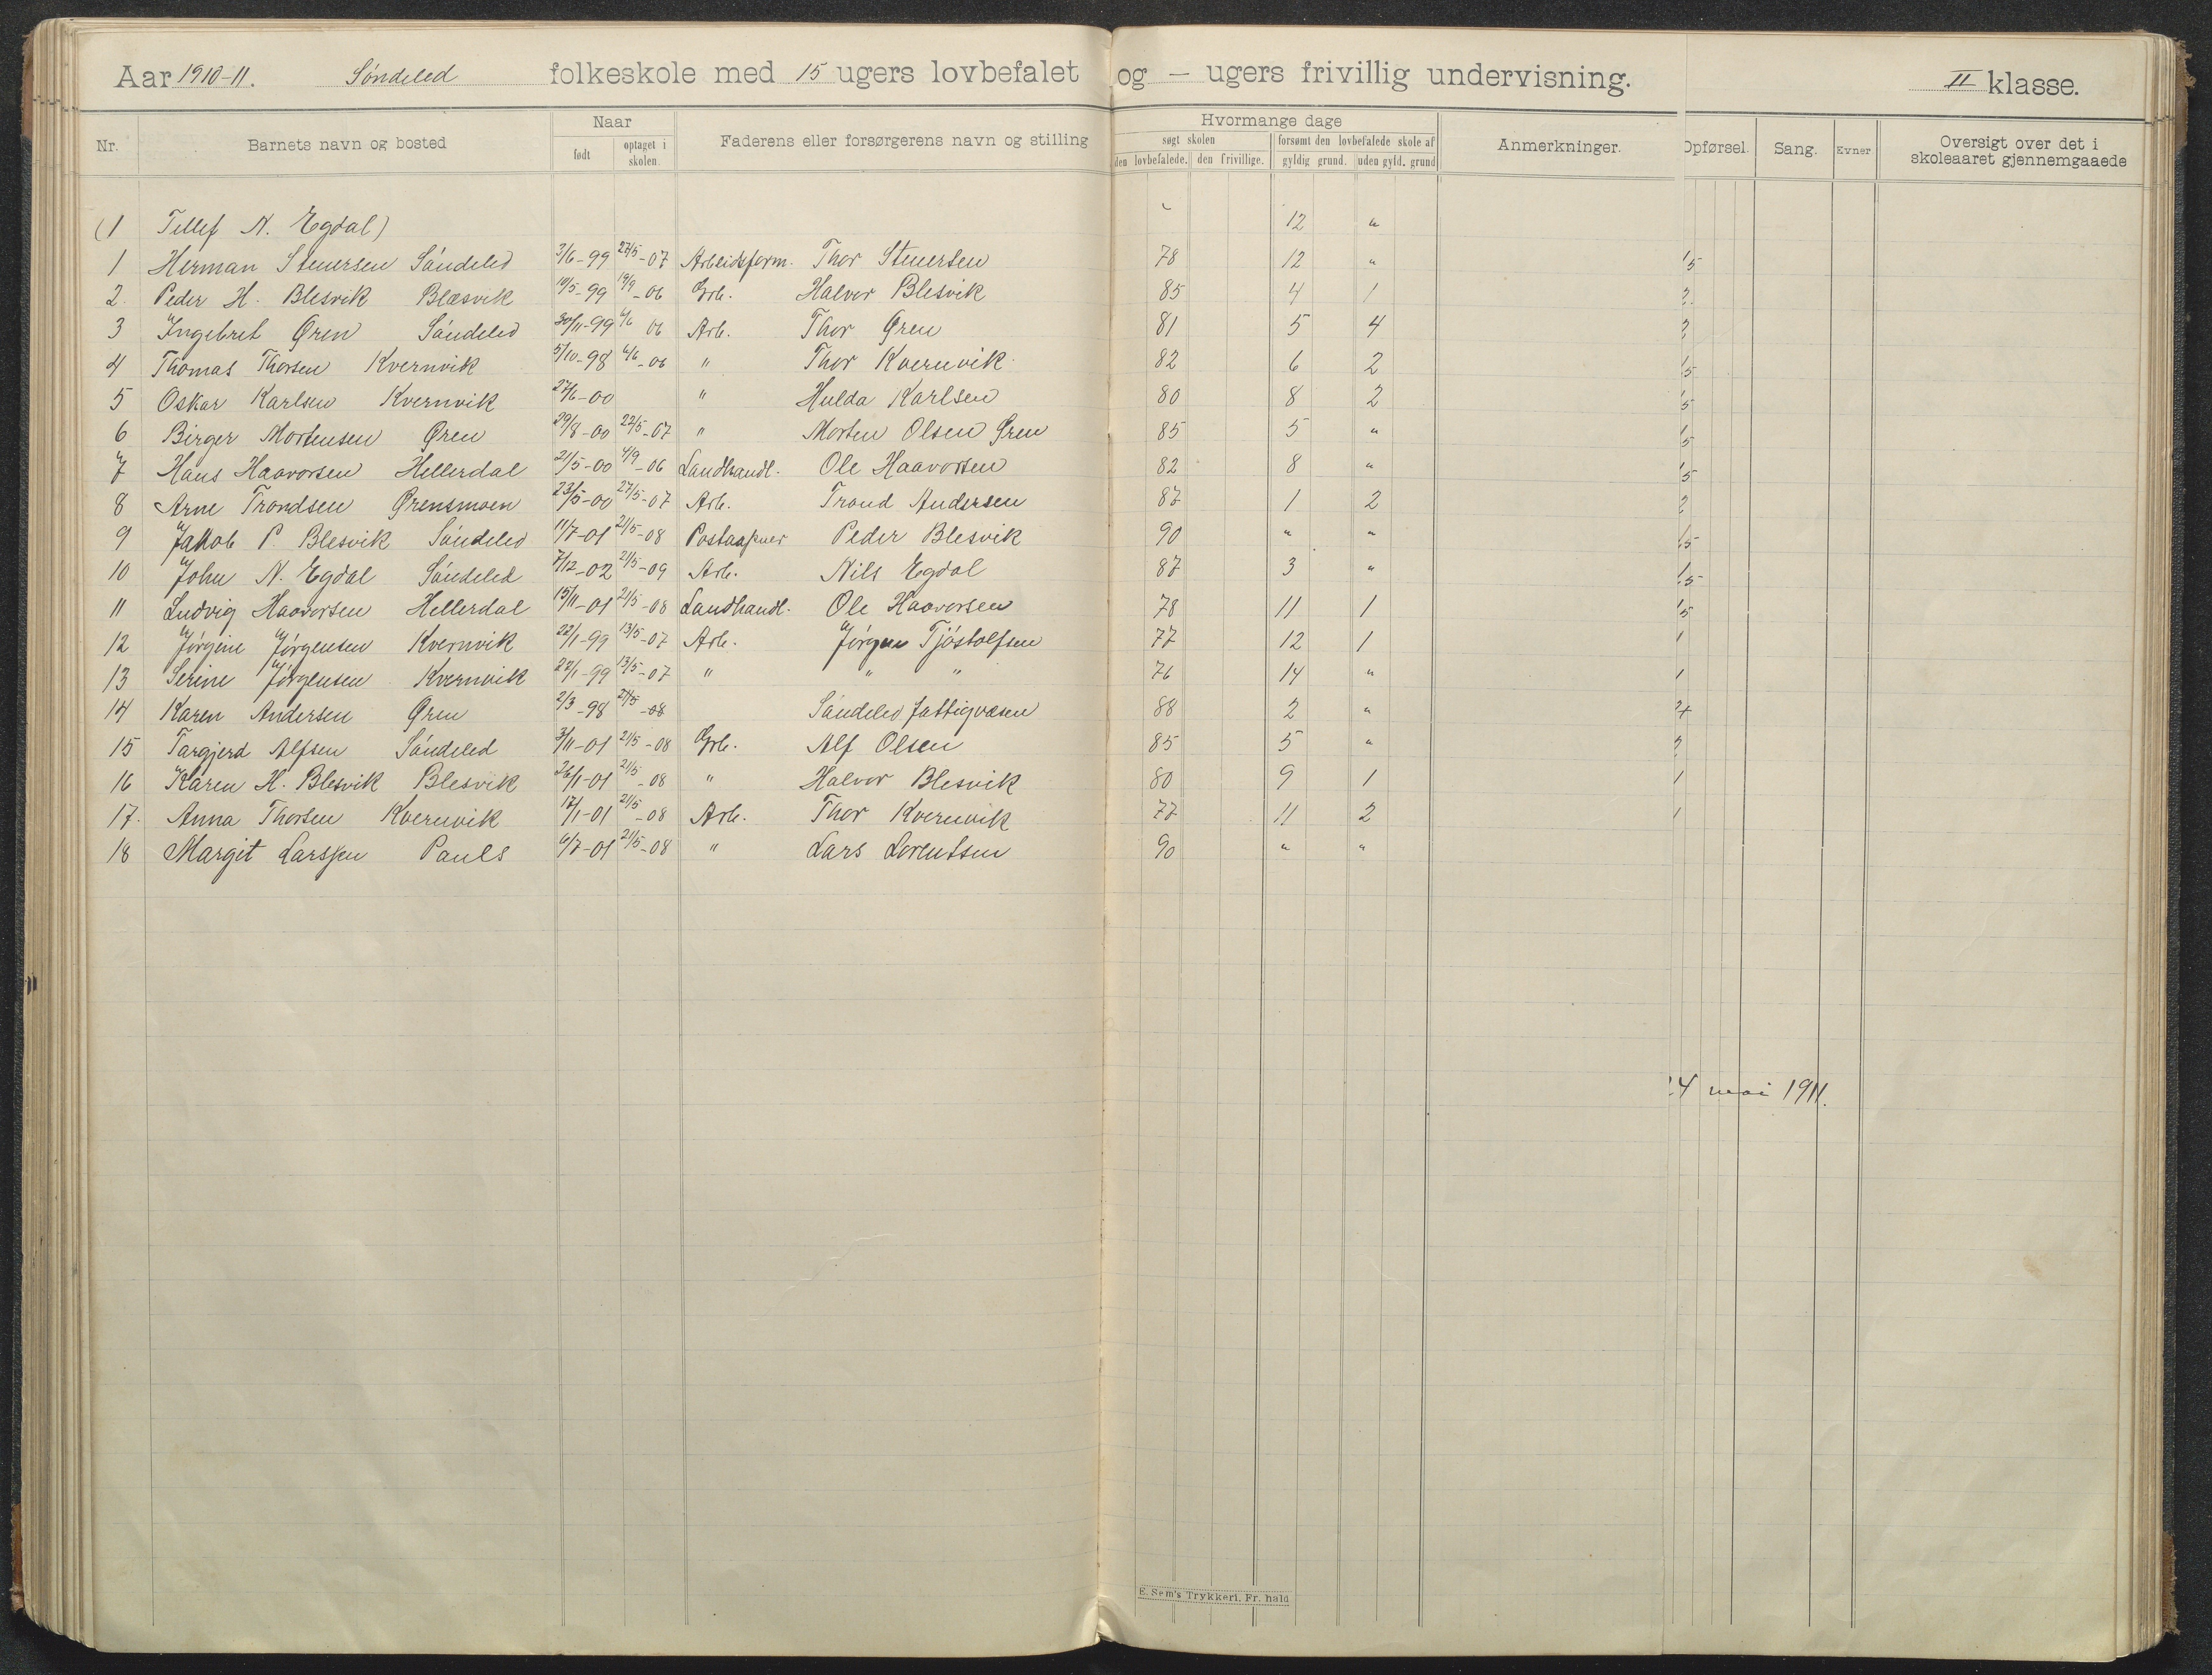 Aar 1910-11. Söndeled folkeskole med 15 ugers lovbefalet og — ugers frivillig undervisning. II klasse.
Nr. Barnets navn og bosted Naar født optaget i skolen. Faderens eller forsørgerens navn og stilling Hvormange dage søgt skolen den lovbefalede. den frivillige. forsømt den lovbefalede skole af gyldig grund. uden gyld. grund Anmerkninger. Opførsel. Sang. Evner Oversigt over det i skoleaaret gjennemgaaede
(1 Tellef N. Egdal) 12 "
1 Herman Stenersen Söndeled 3/6-99 27/5-07 Arbeidsform. Thor Stenersen 78 12 " 1,5
2. Peder H. Blesvik Blæsvik 10/5-99 19/9-06 Grb. Halvor Blesvik 85 4 1 2
3 Ingebret Øren Söndeled 30/11-99 6/6 06 Arb. Thor Øren 81 5 4 2
4 Thomas Thorsen Kvernvik 5/10-98 6/6-06 " Thor Kvernvik 82 6 2 1,5
5 Oskar Karlsen Kvernvik 27/6-00 " Hulda Karlsen 80 8 2 1,5
6 Birger Mortensen Øren 29/8-00 22/5-07 " Morten Olsen Øren 85 5 " 1,5
7 Hans Haavorsen Hellerdal 21/5-00 4/9-06 Landhandl. Ole Haavorsen 82 8 " 1,5
8 Arne Trondsen Ørensmoen 23/5-00 27/5-07 Arb. Trond Andersen 87 1 2 2
9 Jakob P. Blesvik Söndeled 11/7-01 21/5-08 Postaapner Peder Blesvik 90 " " 1,5
10 John N. Egdal Söndeled 7/12-02 21/5-09 Arb. Nils Egdal 87 3 " 1,5
11 Ludvig Haavorsen Hellerdal 15/11-01 21/5-08 Landhandl. Ole Haavorsen 78 11 1 1,5
12 Jörgine Jörgensen Kvernvik 22/1-99 13/5-07 Arb. Jörgen Tjöstolfsen 77 12 1 1
13 Serine Jörgensen Kvernvik 22/1-99 13/5-07 " " " 76 14 " 1
14 Karen Andersen Øren 2/3-98 21/5-08 Söndeled fattigvæsen 88 2 "
15 Targjerd Alfsen Söndeled 3/11-01 21/5-08 Grb. Alf Olsen 85 5 " 2
16 Karen H. Blesvik Blesvik 26/1-01 21/5-08 " Halvor Blesvik 80 9 1 1
17. Anna Thorsen Kvernvik 17/1-01 21/5-08 Arb. Thor Kvernvik 77 11 2 1
18 Margit Larssen Pauls 6/7-01 21/5-08 " Lars Lorentsen 90 " "
24 mai 1911.
E. Sem's Trykkeri, Fr. hald